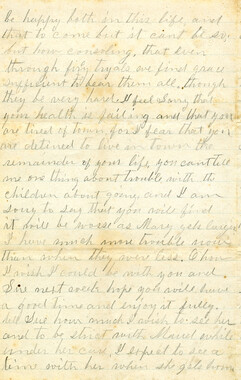 be happy both in this life and
that to come but it cant be so
but how consoling, that even
through firy tryals we find grace
sufficient to bear them all though
they be very hard. I feel sorry that
your health is failing and that you
are tired of town, for I fear that you
are destined to live in town the
remainder of your life, you cant tell
me one thing about trouble with the
children about gone, and I am
sorry to say that you will find
it will be worse as Mary gets larger
I have much more trouble now
than when they were less. O how
I wish I could be with you and
Sis next south hope you will have
a good time and enjoy it fully.
tell Sis how much I wish to see her
and to be strict with Maud while
under her care, I expect to see a
time with her when she gets home